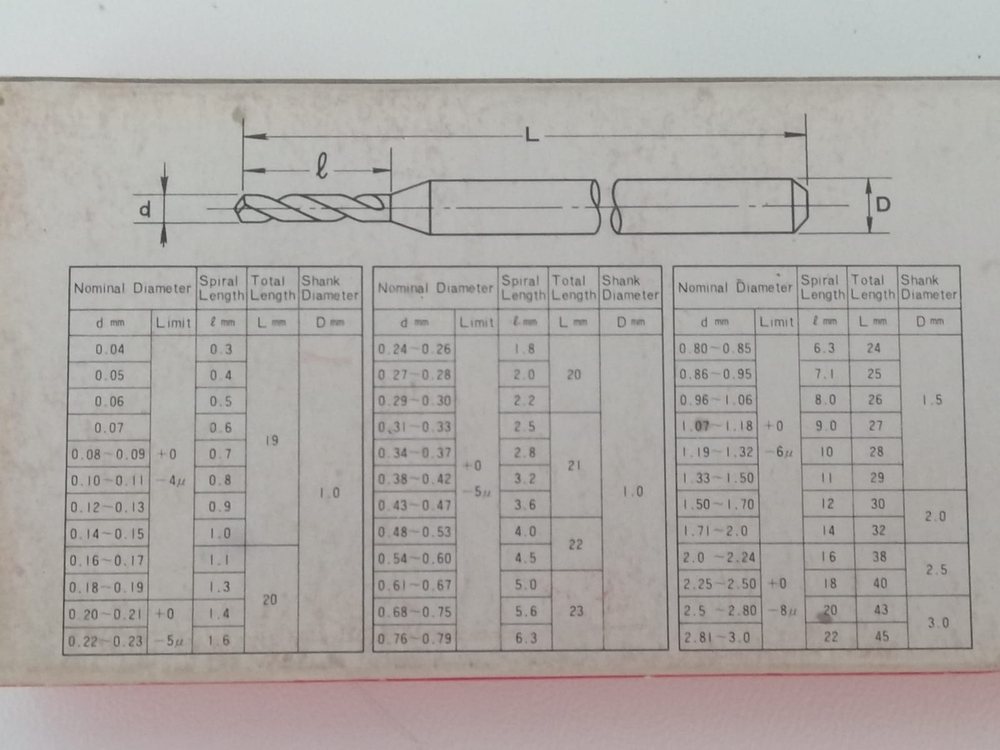 L
ℓ
d
D
Nominal Diameter Spiral Length Total Length Shank Diameter
d mm Limit ℓ mm L mm D mm
0.04 0.3
0.05 0.4
0.06 0.5
0.07 0.6
19
0.08~0.09 +0 0.7
0.10~0.11 -4μ 0.8
1.0
0.12~0.13 0.9
0.14~0.15 1.0
0.16~0.17 1.1
0.18~0.19 1.3
20
0.20~0.21 +0 1.4
0.22~0.23 -5μ 1.6
Nominal Diameter Spiral Length Total Length Shank Diameter
d mm Limit ℓ mm L mm D mm
0.24~0.26 1.8
0.27~0.28 2.0 20
0.29~0.30 2.2
0.31~0.33 2.5
0.34~0.37 2.8
+0 21
0.38~0.42 3.2
-5μ 1.0
0.43~0.47 3.6
0.48~0.53 4.0
22
0.54~0.60 4.5
0.61~0.67 5.0
0.68~0.75 5.6 23
0.76~0.79 6.3
Nominal Diameter Spiral Length Total Length Shank Diameter
d mm Limit ℓ mm L mm D mm
0.80~0.85 6.3 24
0.86~0.95 7.1 25
0.96~1.06 8.0 26 1.5
1.07~1.18 +0 9.0 27
1.19~1.32 -6μ 10 28
1.33~1.50 11 29
1.50~1.70 12 30
2.0
1.71~2.0 14 32
2.0 ~2.24 16 38
2.5
2.25~2.50 +0 18 40
2.5 ~2.80 -8μ 20 43
3.0
2.81~3.0 22 45